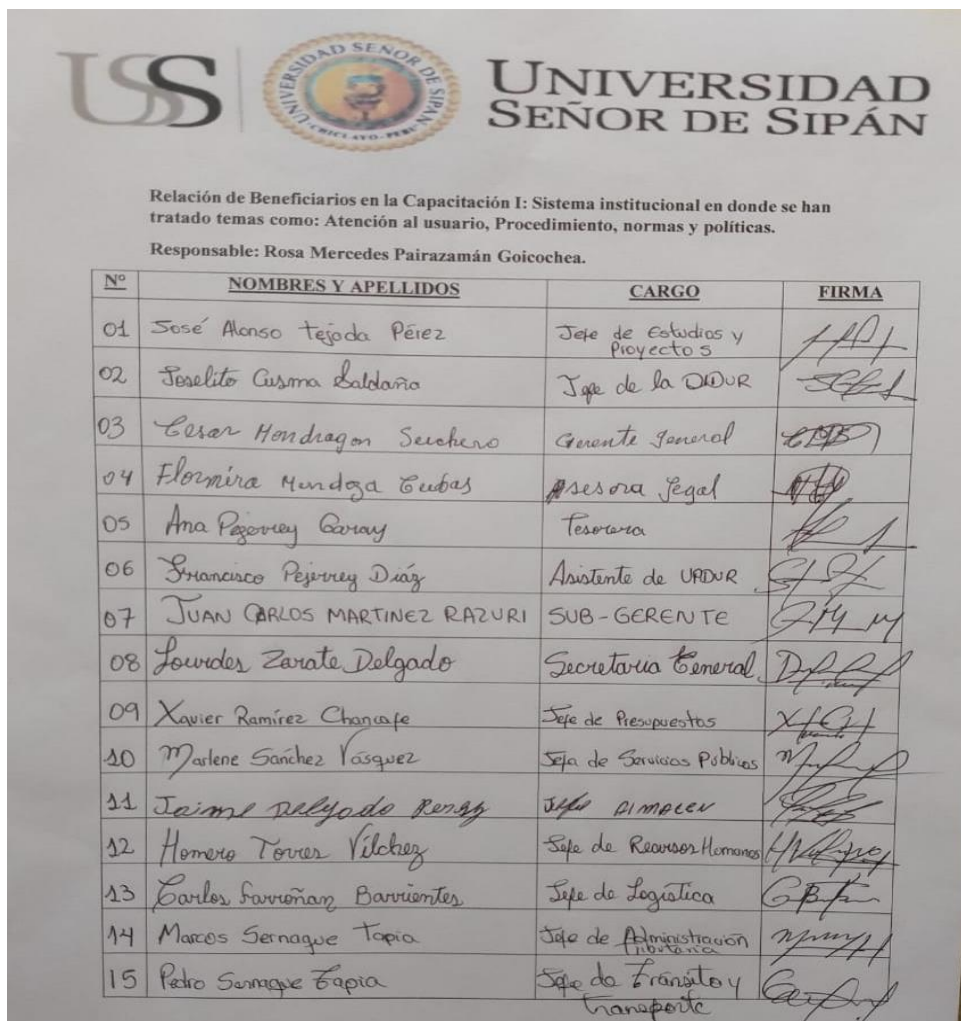 USS
UNIVERSIDAD SEÑOR DE SIPÁN
CHICLAYO-PERÚ
UNIVERSIDAD
SEÑOR DE SIPÁN
Relación de Beneficiarios en la Capacitación I: Sistema institucional en donde se han
tratado temas como: Atención al usuario, Procedimiento, normas y políticas.
Responsable: Rosa Mercedes Pairazamán Goicochea.
Nº NOMBRES Y APELLIDOS CARGO FIRMA
01 José Alonso Tejada Pérez Jefe de Estudios y
Proyectos
02 Joselito Cusma Saldaña Jefe de la
03 Cesar Mondragon Gerente General
04 Flormira Mendoza Cubas Asesora Legal
05 Ana Pejerrey Garay Tesorera
06 Francisco Pejerrey Díaz Asistente de
07 JUAN CARLOS MARTINEZ RAZURI SUB-GERENTE
08 Lourdes Zarate Delgado Secretaria General
09 Xavier Ramírez Chancafe Jefe de Presupuestos
10 Marlene Sánchez Vásquez Jefa de Servicios Públicos
11 Jaime Delgado Jefe ALMACEN
12 Homero Torres Vílchez Jefe de Recursos Humanos
13 Carlos Farroñan Barrientes Jefe de Logística
14 Marcos Sernaque Tapia Jefe de Administración
Tributaria
15 Pedro Sernaque Tapia Jefe de Tránsito y
Transporte